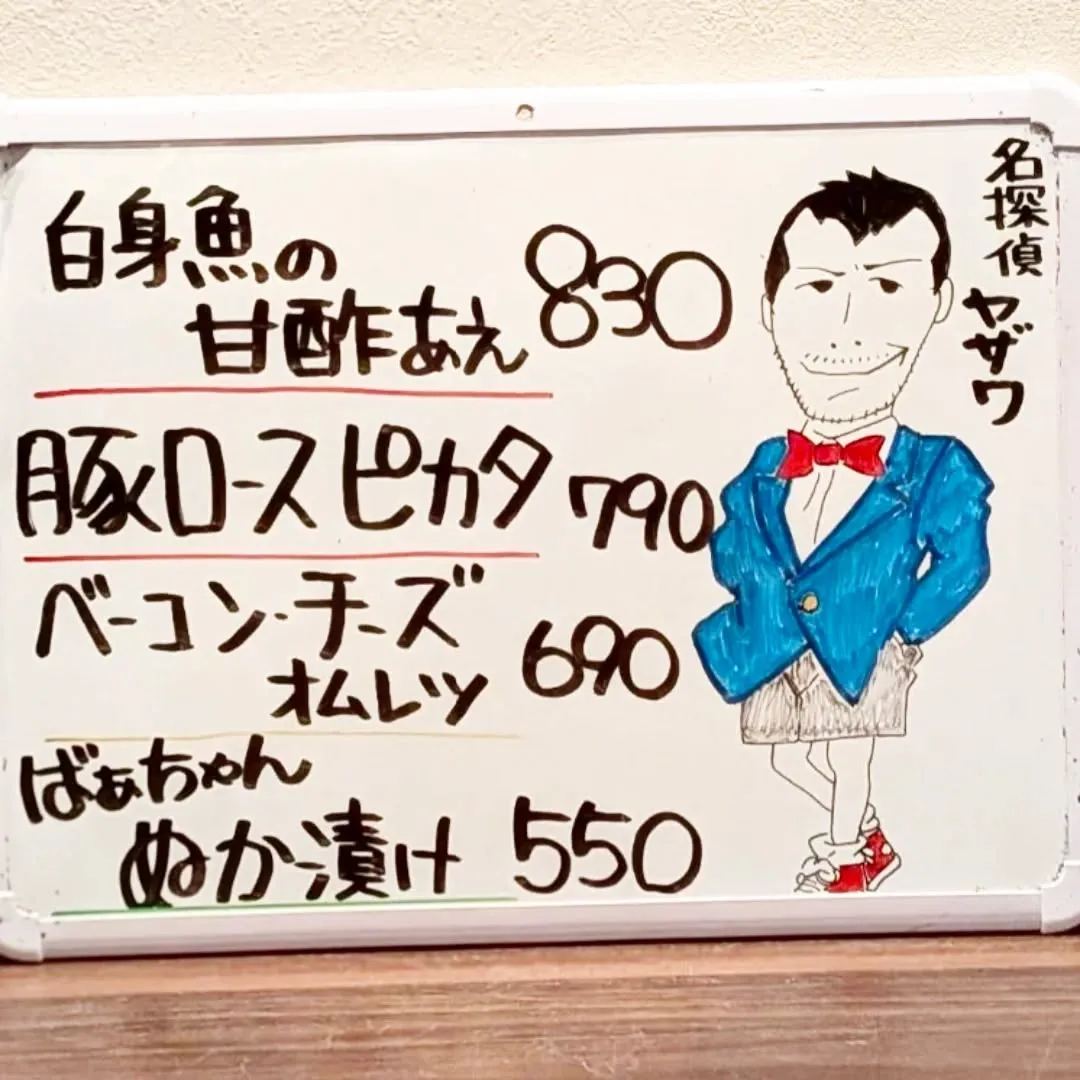 白身魚の
甘酢あえ 830
豚ロースピカタ 790
ベーコン・チーズ
オムレツ 690
ばぁちゃん
ぬか漬け 550
名探偵
ヤザワ